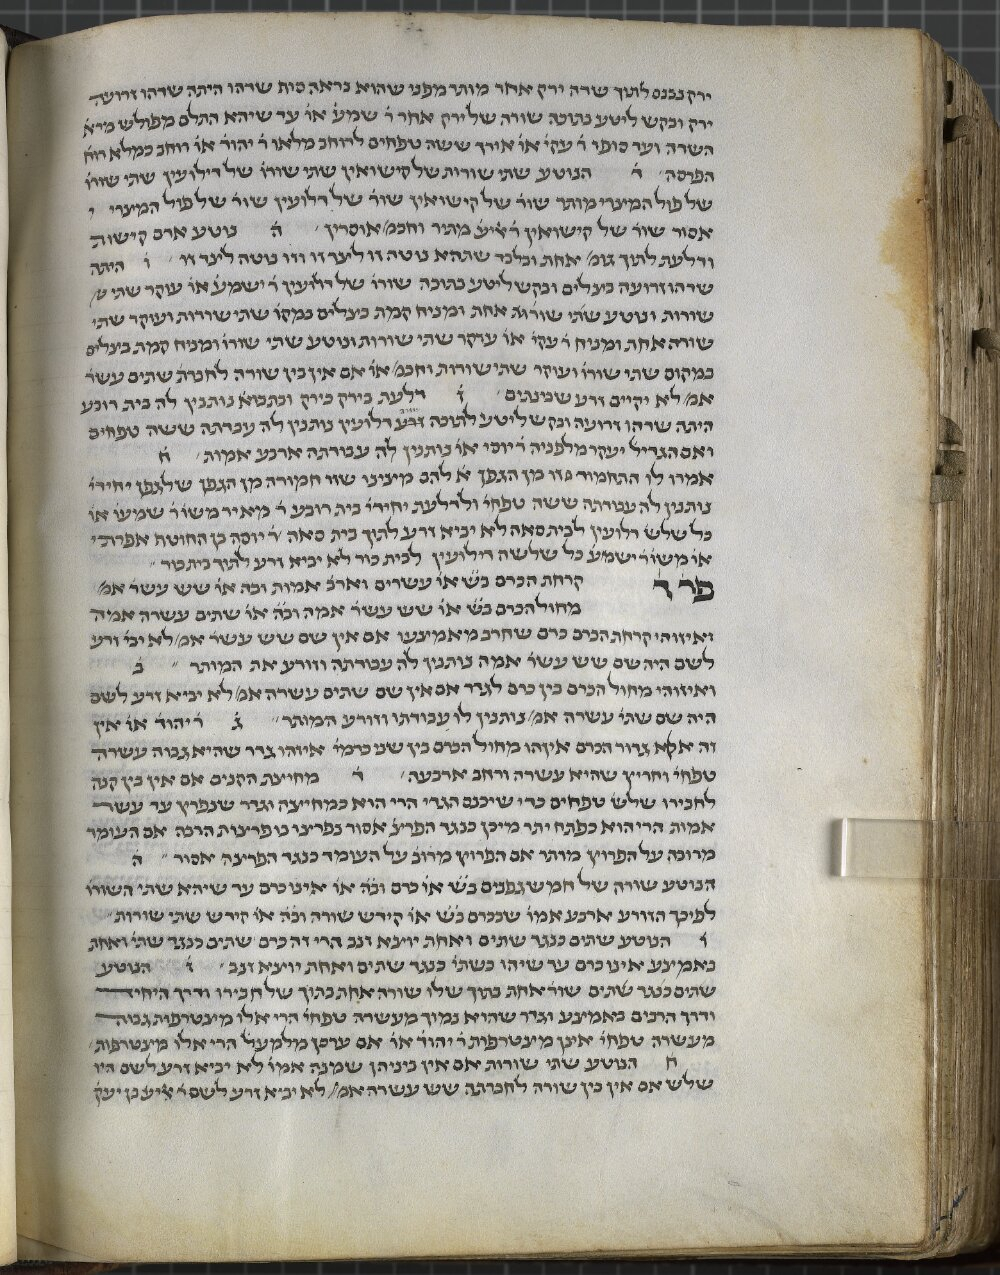 ירק נכנס לתוך שדה ירק אחר מותר מפני שהוא נראה סוף שדהו היתה שדהו זרועה
ירק ובקש ליטע בתוכה שורה של ירק אחר ר' שמע' או' עד שיהא התלם מפולש מרא'
השדה ועד סופו ר' עקי' או' אורך ששה טפחים לרוחב מלאו ר' יהוד' או' רוחב כמלא רוח'
הפרסה ד' הנוטע שתי שורות של קישואין שתי שורו' של דילועין שתי שורו'
של פול המיצרי מותר שור' של קישואין שור' של דלועין שור' של פול המיצרי
אסור שור' של קישואין ר' אליע' מתיר וחכמ' אוסרין ה' נוטע אדם קישות
ודלעת לתוך גומ' אחת ובלבד שתהא נוטה זו ליצד זו וזו נוטה ליצד זו ו' היתה
שדהו זרועה בצלים ובקש ליטע בתוכה שורו' של דלועין ר' ישמע' או' עוקר שתי
שורות ונוטע שורה אחת ומניח קמת בצלים במקו' שתי שורות ועוקר שתי
שורה אחת ומניח ר' עקי' או' עוקר שתי שורות ונוטע שתי שורו' ומניח קמת בצלים
במקום שתי שורו' ועוקר שתי שורות וחכמ' או' אם אין בין שורה לחברת' שתים עשר'
אמ' לא יקיים זרע שבינתים ז' דלעת בירק כירק ובתבוא' נותנין לה בית רובע
היתה שדהו זרועה ובקש ליטע לתוכה דלועין נותנין לה עבדתה ששה טפחים
ואם הגדיל יעקר מלפניה ר' יוסי או' נותנין לה עבודתה ארבע אמות ח'
אמרו לו התחמיר זו מן הגפן א' להם מצינו שזו חמורה מן הגפן שלגפן יחידי'
נותנין לה עבודתה ששה טפחי' ולדלעת יחידי' בית רובע ר' מאיר משו' ר' שמעו' או'
כל שלש דלועין לבית סאה לא יביא זרע לתוך בית סאה ר' יוסה בן החוטף אפרתי
או' משו' ר' ישמע' כל שלשה דילועין לבית כור לא יביא זרע לתוך בית כור
פר' ד' קרחת הכרם בש' או' עשרים וארב' אמות ובה' או' שש עשר' אמ'
מחול הכרם בש' או' שש עשר' אמה ובה' או' שתים עשרה אמה
ואיזוהי קרחת הכרם כרם שחרב מאמיצעו אם אין שם שש עשר' אמ' לא יבי' זרע
לשם היה שם שש עשר' אמה נותנין לה עבודתה וזורע את המותר ב'
ואיזוהי מחול הכרם בין כרם לגדר אם אין שם שתים עשרה אמ' לא יביא זרע לשם
היה שם שתי' עשרה אמ' נותנין לו עבודתו וזורע המותר ג' ר' יהוד' או' אין
זה אלא גדור הכרם איזהו מחול הכרם בין שני כרמי' איזוהו גדר שהיא גבוה עשרה
טפחי' וחריץ שהיא עשרה ורחב ארבעה ד' מחיצת הקנים אם אין בין קנה
לחבירו שלש' טפחים כדי שיכנס הגדי הרי הוא כמחייצה וגדר שנפרץ עד עשר
אמות הרי הוא כפתח יתר מיכן כנגד הפרצ' אסור נפרצו בו פרצות הרבה אם העומד
מרובה על הפרוץ מותר אם הפרוץ מרוב' על העומד כנגד הפרצה אסור ה'
הנוטע שורה של חמש גפנים בש' או' כרם ובה' או' אינו כרם עד שיהא שתי השורו'
לפיכך הזורע ארבע אמו' שבכרם בש' או' קידש שורה ובה' או' קידש שתי שורות
ו' הנוטע שתים כנגד שתים ואחת יוצא זנב הרי זה כרם שתים כנגד שתי' ואחת
באמיצע אינו כרם עד שיהו כשתי' כנגד שתים ואחת יוצא זנב ז' הנוטע
שתים כנגד שתים שור' אחת בתוך שלו שורה אחת בתוך של חבירו ודרך היחיד
ודרך הרבים באמיצע וגדר שהוא נמוך מעשרה טפחי' הרי אלו מיצטרפות גבוה
מעשרה טפחי' אינן מיצטרפות ר' יהוד' או' אם ערסן מלמעל' הרי אלו מיצטרפות
ח' הנוטע שתי שורות אם אין ביניהן שמנה אמו' לא יביא זרע לשם היו
שלש אם אין בין שורה לחברתה שש עשרה אמ' לא יביא זרע לשם ר' אליע' בן יעק'